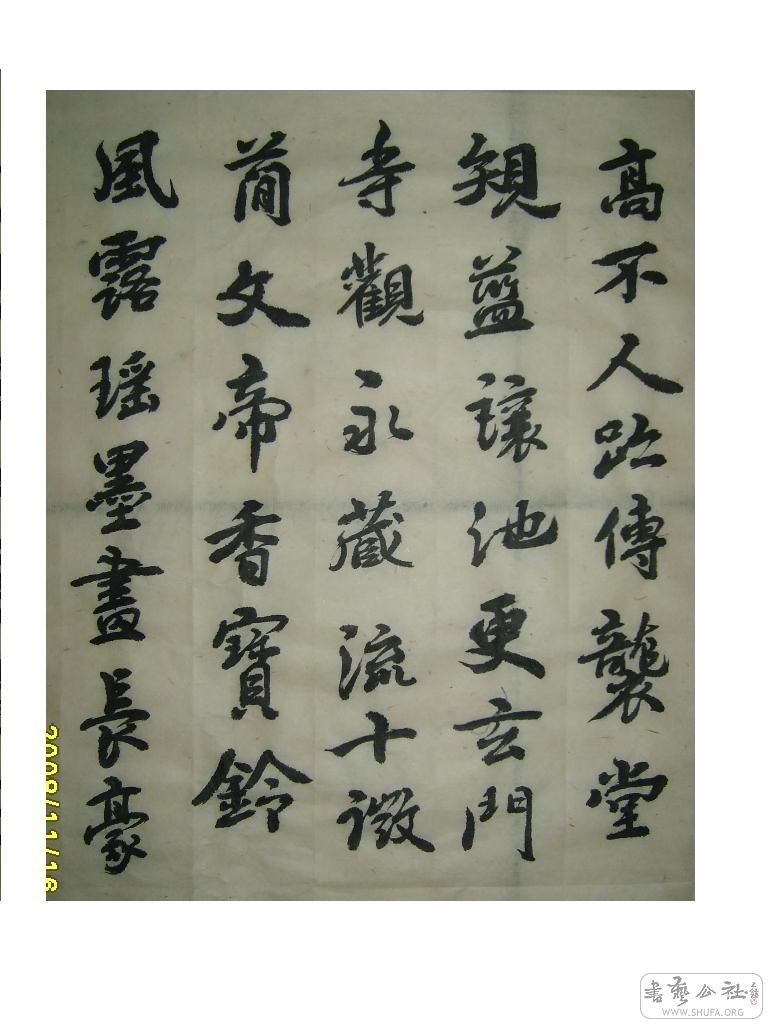 高不人趾傳襲堂
規藍讓池更玄門
寺觀永藏流十微
簡文帝香寶鈴
風露瑶墨畫長豪
2008/11/16
書藝公社
WWW.SHUFA.ORG